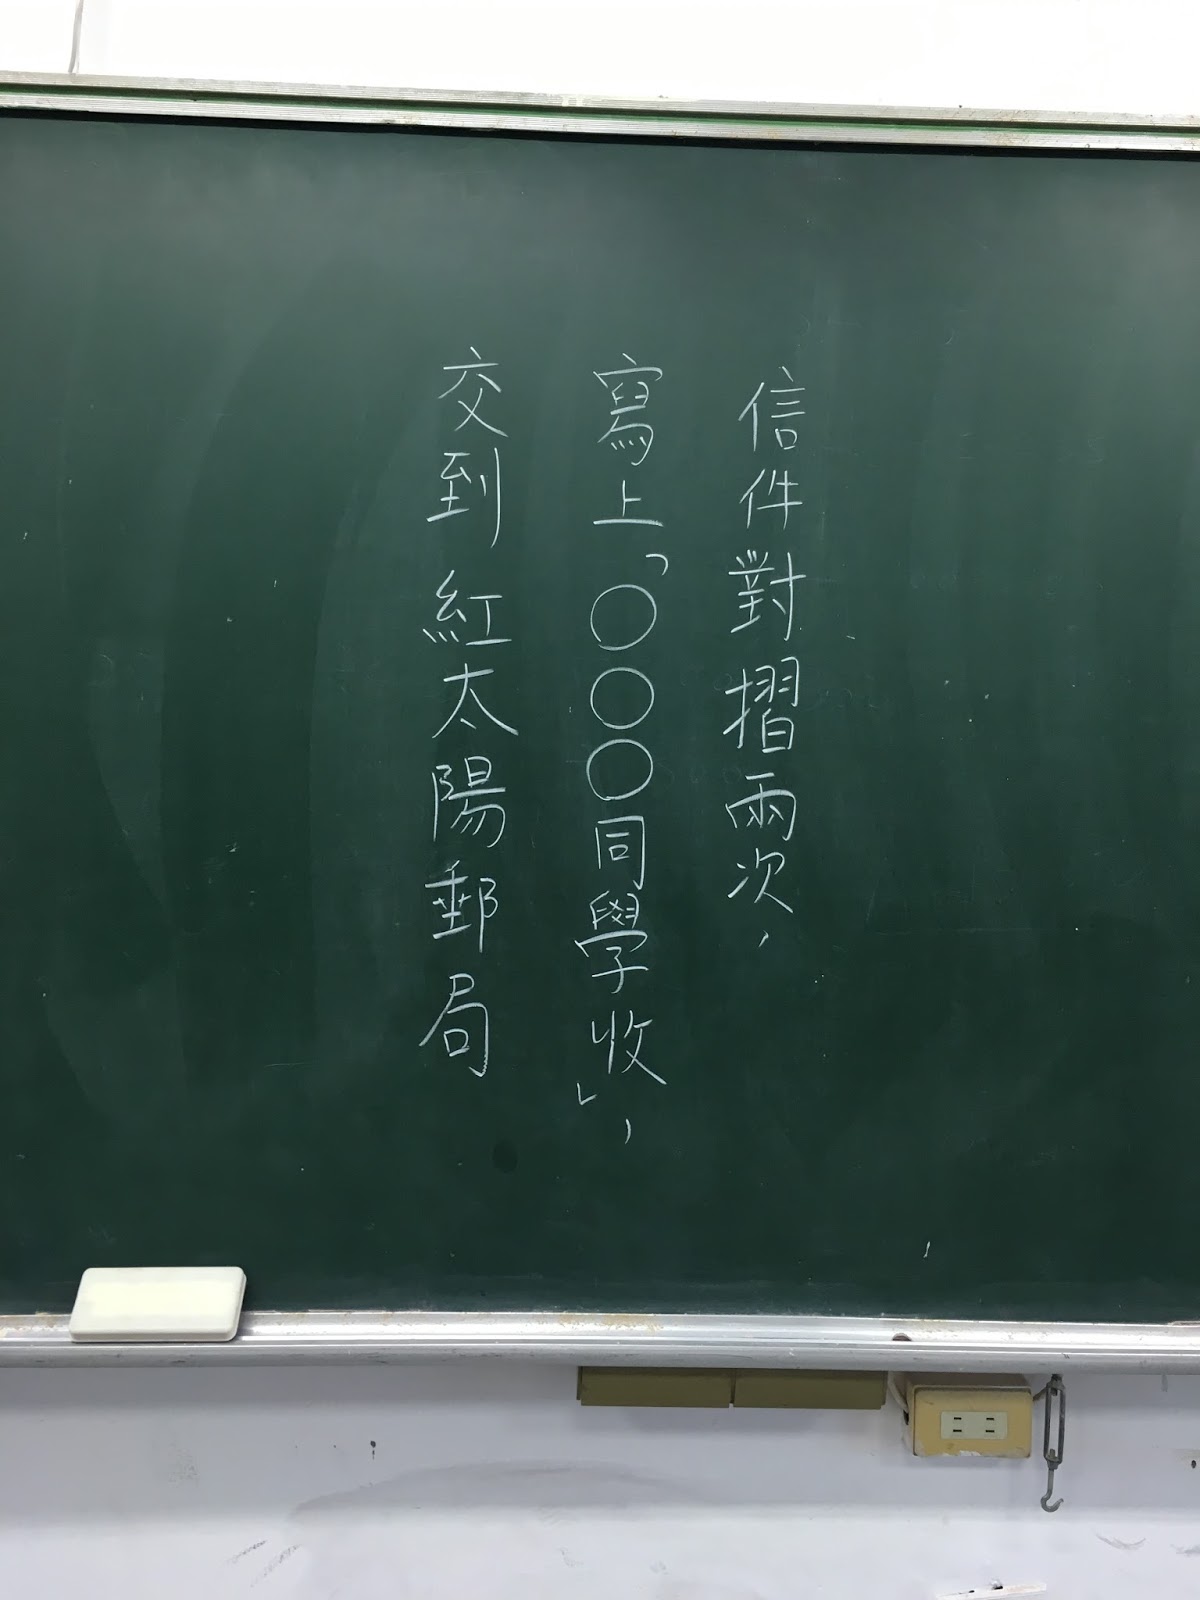 信件對摺兩次，
寫上「○○○同學收」，
交到紅太陽郵局